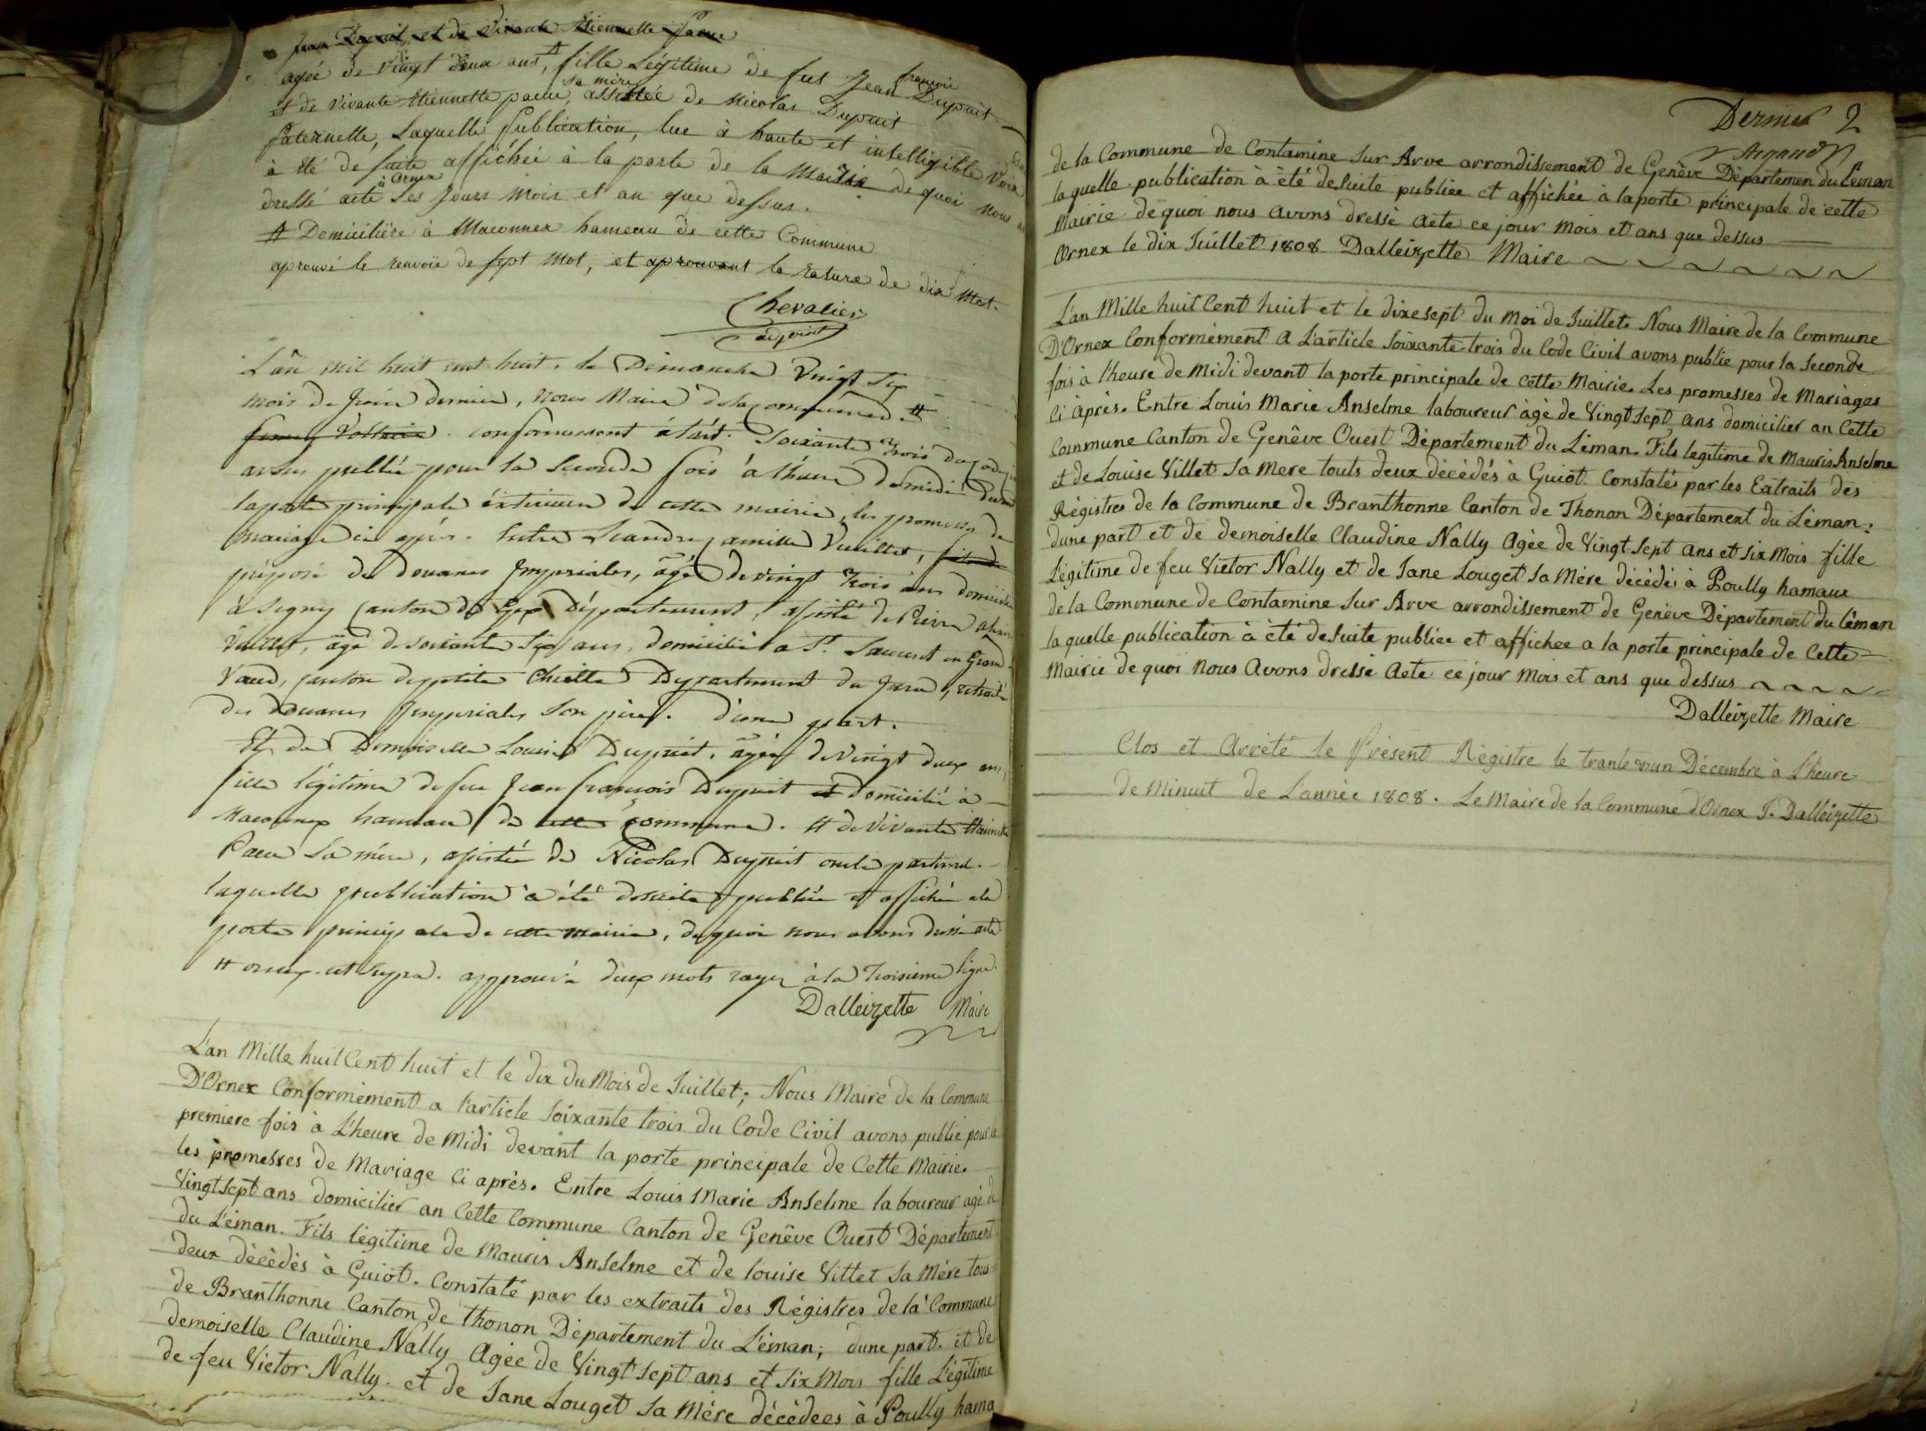 Jean Dupuit, et de Vivante Etiennette Pacue
agée de vingt deux ans, # fille Légitime de fut Jean françois Dupuit
et de vivante Etiennette pacue, sa mère assistée de Nicolas Dupuit
Paternelle, Laquelle Publication, lue à haute et intelligible Voix
à été de suite affichée à la porte de la Mairie de quoi nous
dressé acte à Ornex Les Jours Mois et an que dessus.
# Demiciliée à Maconnex hameau de cette Commune
aprouvé le renvoie de sept Mot, et aprouvant la rature de dix Mot.
Chevalier
adjoint
L'an mil huit cent huit, le Dimanche Vingt Six
mois de Juin dernier, nous Maire de la Commune d #
ferney Voltaire. conformement à l'art. Soixante trois du Code
avons publié pour la Seconde fois à l'heure de midi devant
la porte principale éxterieure de cette mairie, les promesses de
mariage ci après. Entre Léandre Camille Vuillet, fils de
préposé des Douanes Impériales, âgé de vingt trois ans domicilié
à Segny Canton de Gex Département, assisté de Pierre
Vuillet, âgé de soixante Six ans, domicilié à St. Laurent en Grand
Vaud, canton de petite Chiette Département du Jura, retraité
des Douanes Impériales Son père. d'une part.
Et de Demoiselle Louise Dupuit, âgée de Vingt deux ans,
fille légitime de feu Jean françois Dupuit et domiciliée à
Maconnex hameau de cette Commune. Et de Vivante Etiennette
Pacue Sa mère, assistée de Nicolas Dupuit oncle paternel.
laquelle publication à été de suite publiée et affichée à la
porte principale de cette mairie, de quoi nous avons dressé acte
# ornex. ut Supra. approuvé deux mots rayés à la troisième ligne
Dalleizette Maire
L'an Mille huit Cent huit et le dix du Mois de Juillet; Nous Maire de la Commune
D'Ornex Conformément a l'article Soixante trois du Code Civil avons publié pour la
premiere fois à L'heure de Midi devant la porte principale de Cette Mairie.
les promesses de Mariage Ci après. Entre Louis Marie Anselme laboureur agé de
Vingt Sept ans domicilier an Cette Commune Canton de Genêve Ouest Département
du Léman. Fils légitime de Mauris Anselme et de louise Villet Sa Mére tous
deux décédés à Guiot. Constaté par les extraits des Régistres de la Commune
de Branthonne Canton de thonon Département du Léman; dune part. et de
demoiselle Claudine Nally Agée de Vingt Sept ans et Six Mois fille Légitime
de feu Victor Nally. et de Jane Louget Sa Mére décédees à Poully hama
Dernier 2
Argand
de la Commune de Contamine Sur Arve arrondissement de Genêve Département du Léman
laquelle publication à été desuite publiée et affichée à la porte principale de cette
Mairie de quoi nous avons dressé acte ce jour Mois et ans que dessus
Ornex le dix Juillet 1808 Dalleizette Maire
L'an Mille huit Cent huit et le dixesept du Moi de Juillet. Nous Maire de la Commune
D'Ornex Conformément A L'article Soixante-trois du Code Civil avons publié pour la Seconde
fois à l'heure de Midi devant la porte principale de Cette Mairie. Les promesses de Mariages
Ci Après. Entre Louis Marie Anselme laboureur àgé de Vingt Sept ans domicilier an Cette
Commune Canton de Genêve Ouest Département du Léman. Fils legitime de Mauris Anselme
et de Louise Villet Sa Mere touts deux décédés à Guiot. Constatés par les Extraits des
Régistres de la Commune de Branthonne Canton de Thonon Département du Léman;
dune part et de demoiselle Claudine Nally Agée de Vingt Sept ans et Six Mois fille
Légitime de feu Victor Nally et de Jane Louget Sa Mére décédée à Poully hamaux
de la Commune de Contamine Sur Arve arrondissement de Genève Département du Léman
laquelle publication à été desuite publiee et affichee a la porte principale de Cette
Mairie de quoi Nous Avons dressé Acte ce jour Mois et ans que dessus
Dalleizette Maire
Clos et Arrêté le Présent Régistre le trante un Décembre à L'heure
de Minuit de L'année 1808. Le Maire de la Commune d'Ornex J. Dalleizette